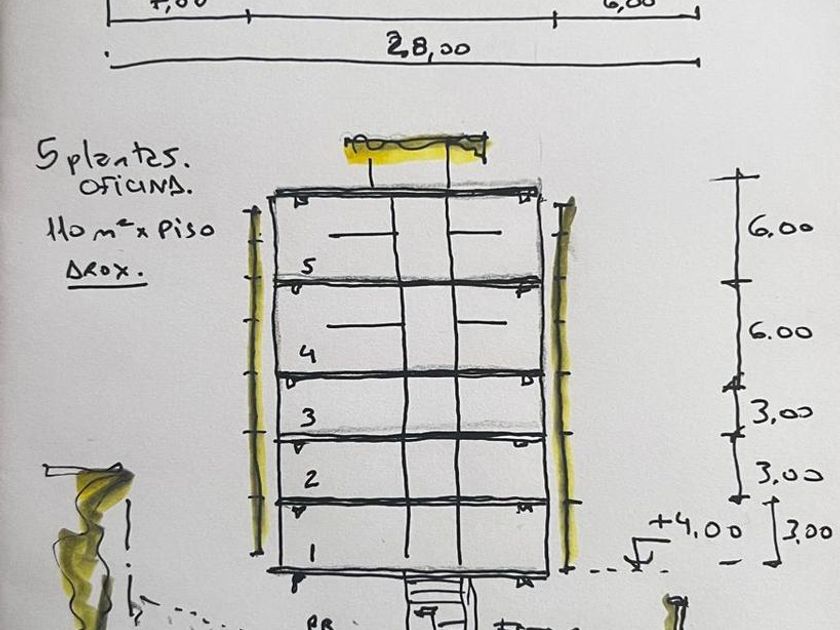 7,00
6,00
28,00
5 plantas.
OFICINA.
110 m² x PISO
AROX.
5
4
3
2
1
6.00
6.00
3,00
3,00
+4.00
3,00
PB